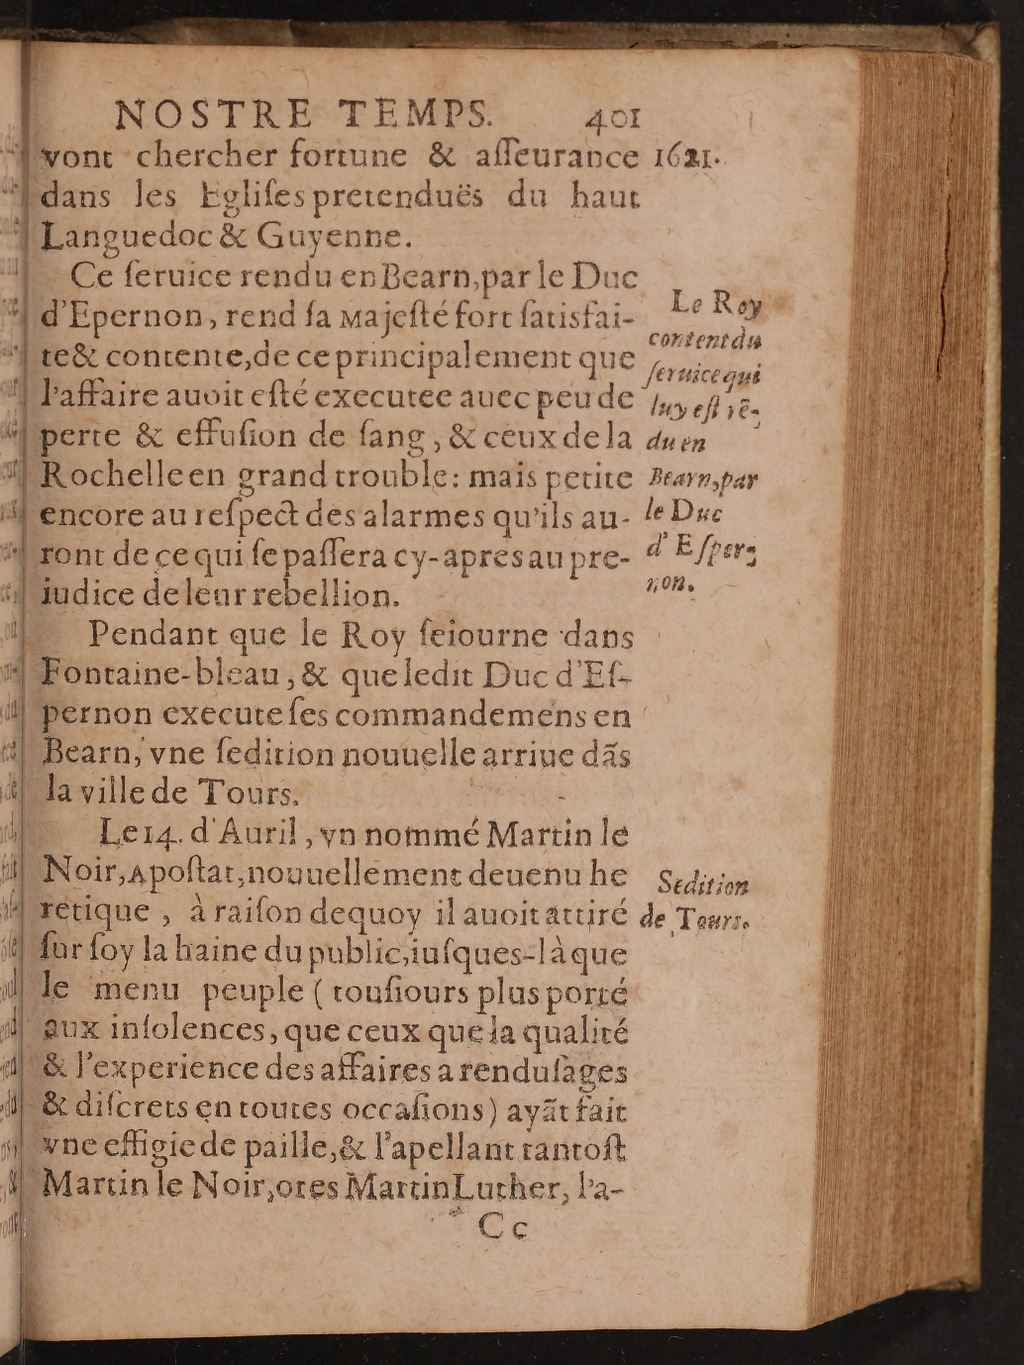 NOSTRE TEMPS. 401
vont chercher fortune & aſſeurance 1621.
dans les Egliſes pretenduës du haut
Languedoc & Guyenne.
Ce ſeruice rendu en Bearn, par le Duc
d'Epernon, rend ſa Majeſté fort ſatisfai-
te & contente, de ce principalement que
l'affaire auoit eſté executee auec peu de
perte & effuſion de ſang, & ceux de la
Rochelle en grand trouble: mais petite
encore au reſpect des alarmes qu'ils au-
ront de ce qui ſe paſſera cy-apres au pre-
iudice de leur rebellion.
Le Roy
content du
ſeruice qui
luy eſt rē-
du en
Bearn, par
le Duc
d'Eſper-
non.
Pendant que le Roy ſeiourne dans
Fontaine-bleau, & que ledit Duc d'Eſ-
pernon execute ſes commandemens en
Bearn, vne ſedition nouuelle arriue dãs
la ville de Tours.
Le 14. d'Auril, vn nommé Martin le
Noir, Apoſtat, nouuellement deuenu he
retique, à raiſon dequoy il auoit attiré
ſur ſoy la haine du public, iuſques-là que
le menu peuple (touſiours plus porté
aux inſolences, que ceux que la qualité
& l'experience des affaires a rendu ſages
& diſcrets en toutes occaſions) ayãt fait
vne effigie de paille, & l'apellant tantoſt
Martin le Noir, ores Martin Luther, l'a-
Sedition
de Tours.
Cc